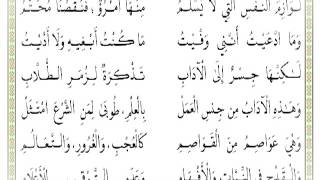 لَوَازِمُ النَّفْسِ الَّتِي لَا يَسْلَمُ مِنْهَا امْرُؤٌ فَنَقْصُنَا مُحَتَّمُ
وَمَا ادَّعَيْتُ أَنَّنِي وَفَيْتُ مَا كُنْتُ أَبْغِيهِ وَلَا أَدَّيْتُ
لَكِنَّهَا جِسْرٌ إِلَى الْآدَابِ تَذْكِرَةً لِزُمَرِ الطُّلَّابِ
وَهَذِهِ الْآدَابُ مِنْ جِنْسِ الْعَمَلْ بِالْعِلْمِ، طُوبَى لِمَنِ الشَّرْعَ امْتَثَلْ
وَهْيَ عَوَاصِمٌ مِنَ الْقَوَاصِمِ كَالْعُجْبِ، وَالْغُرُورِ، وَالتَّعَالُمِ
وَالْقَدْحِ فِي النِّيَّاتِ وَالْأَفْهَامِ